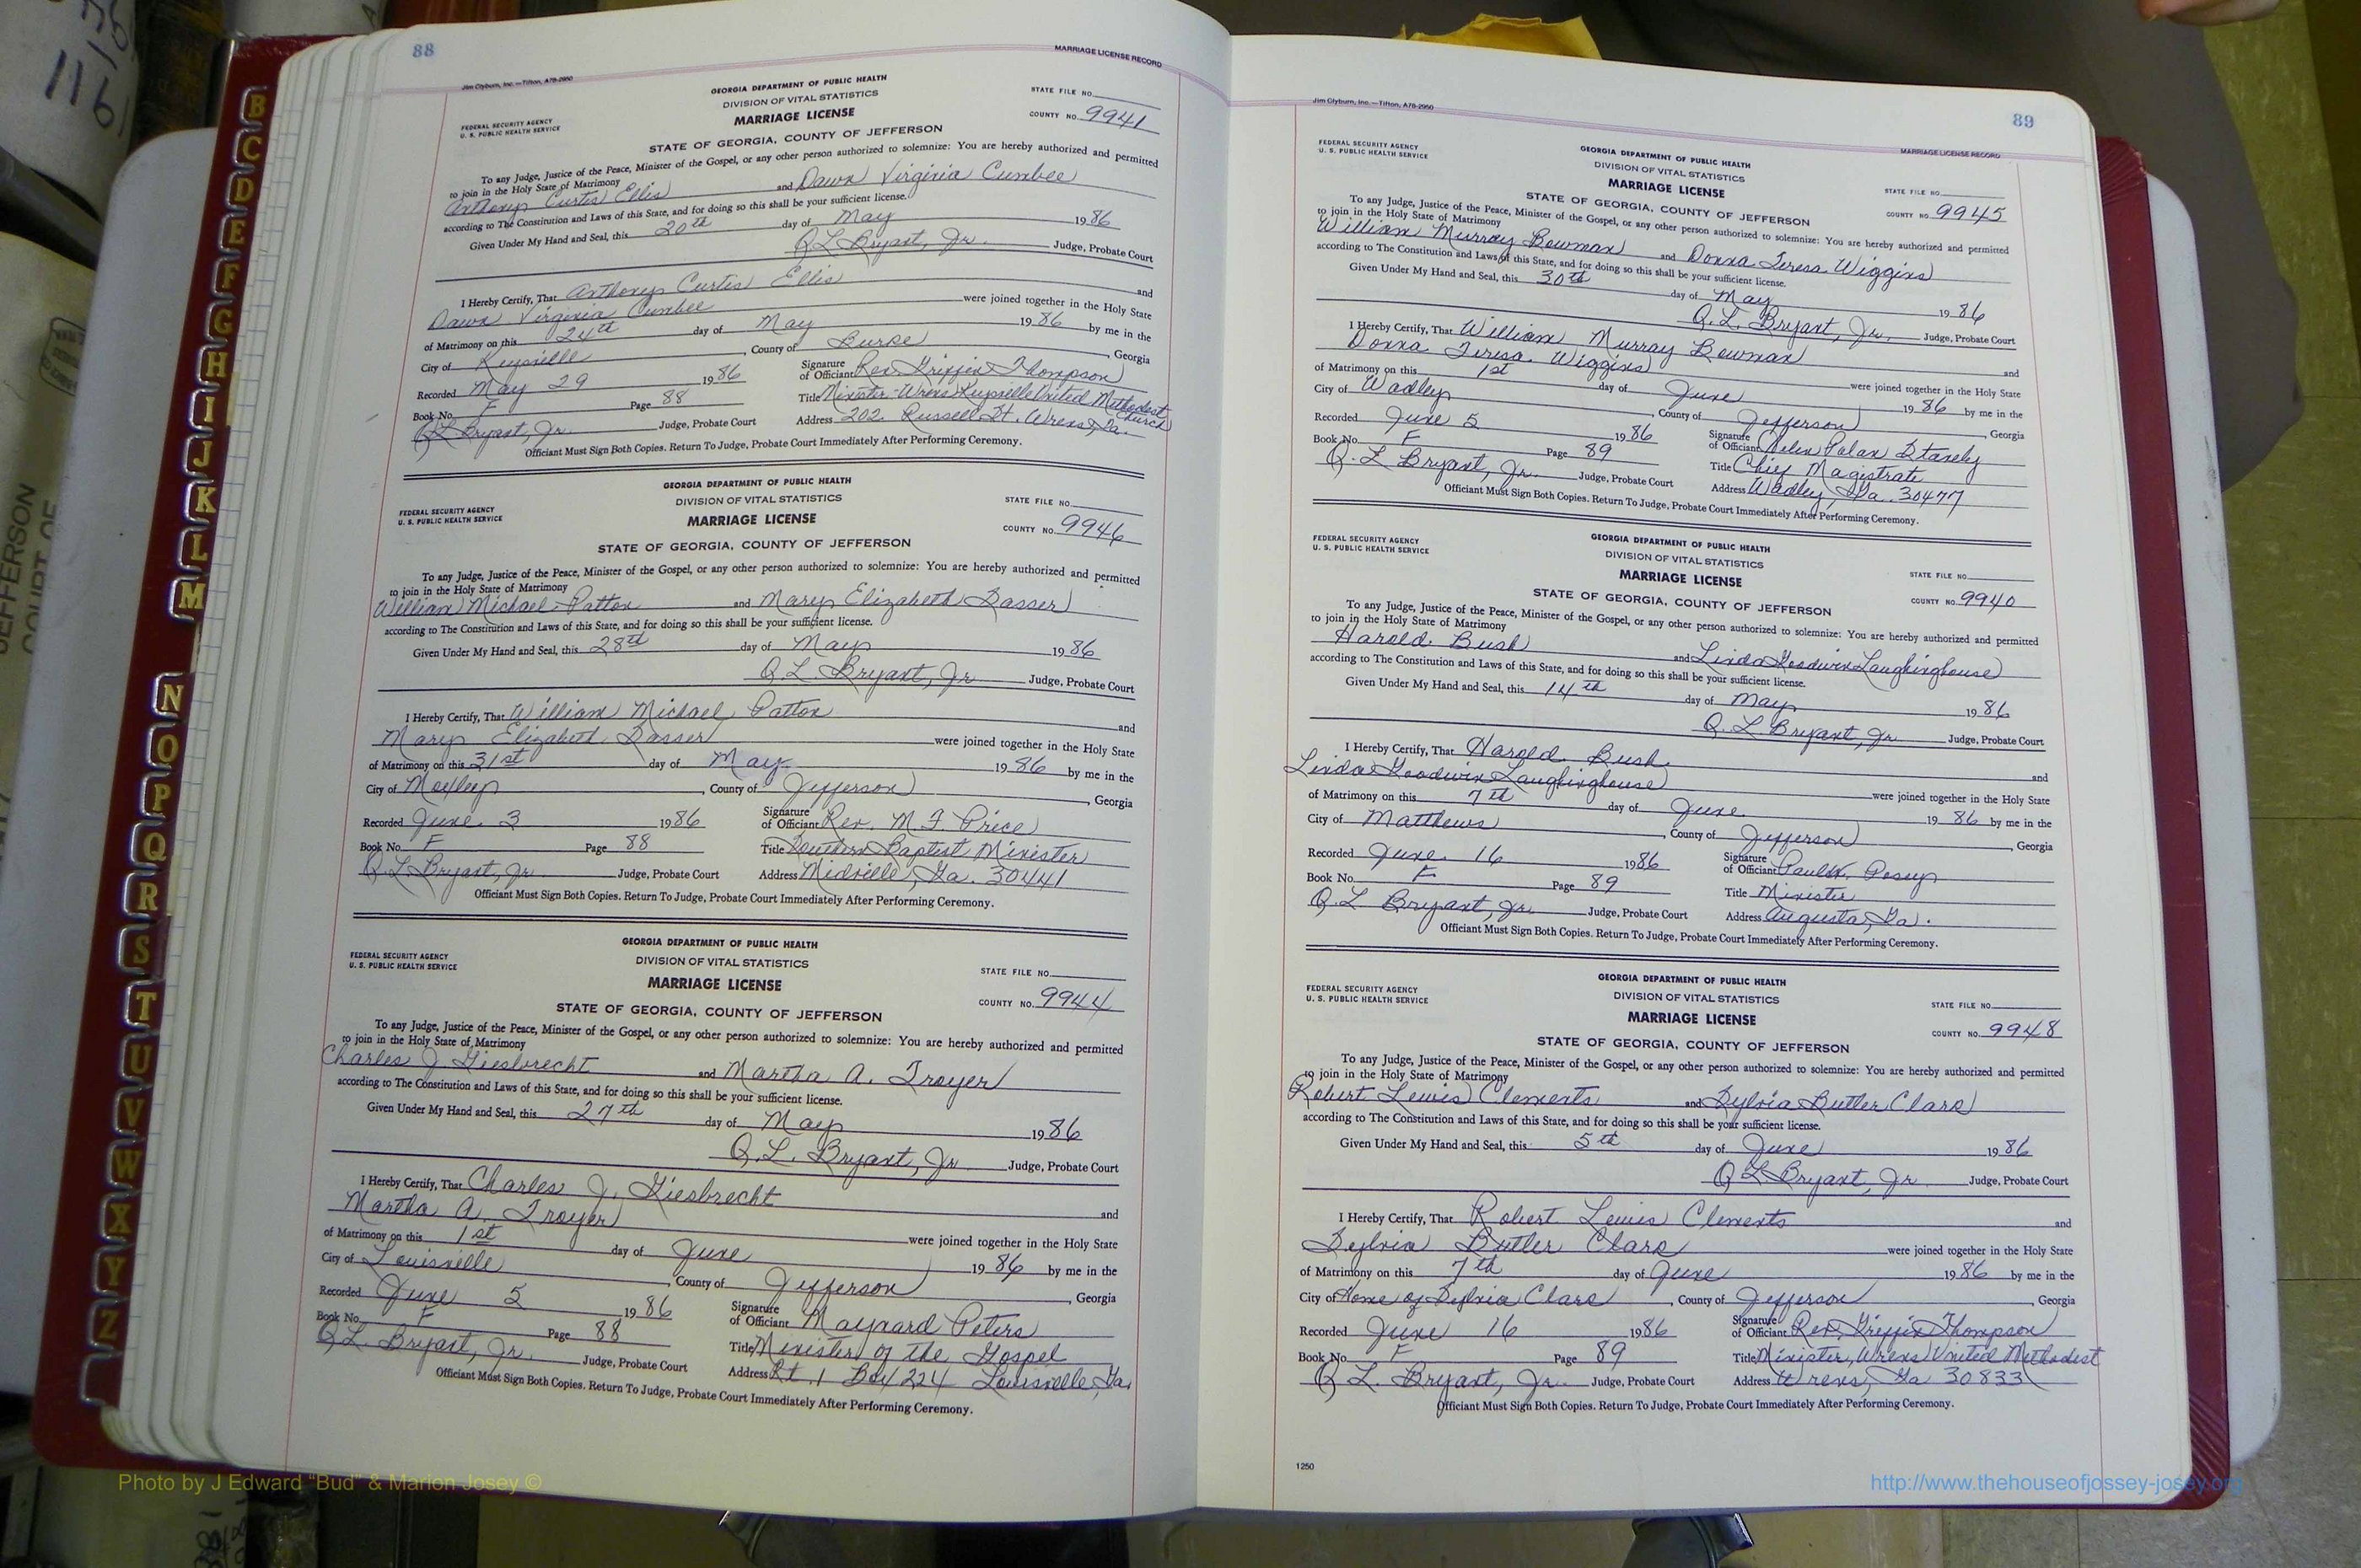 88
MARRIAGE LICENSE RECORD
Jim Clyburn, Inc.—Tifton, A78-2950
GEORGIA DEPARTMENT OF PUBLIC HEALTH
DIVISION OF VITAL STATISTICS
MARRIAGE LICENSE
STATE FILE NO.
COUNTY NO. 9941
FEDERAL SECURITY AGENCY
U. S. PUBLIC HEALTH SERVICE
STATE OF GEORGIA, COUNTY OF JEFFERSON
To any Judge, Justice of the Peace, Minister of the Gospel, or any other person authorized to solemnize: You are hereby authorized and permitted
to join in the Holy State of Matrimony
Anthony Curtis Ellis and Dawn Virginia Cumbee
according to The Constitution and Laws of this State, and for doing so this shall be your sufficient license.
Given Under My Hand and Seal, this 20th day of May 1986
Q L Bryant, Jr. Judge, Probate Court
I Hereby Certify, That Anthony Curtis Ellis and
Dawn Virginia Cumbee were joined together in the Holy State
of Matrimony on this 24th day of May 1986 by me in the
City of Keysville, County of Burke, Georgia
Recorded May 29 1986 Signature of Officiant Rev. Griffin Thompson
Book No. F Page 88 Title Minister-Wrens Keysville United Methodist Church
Q L Bryant, Jr. Judge, Probate Court Address 202 Russell St. Wrens, Ga.
Officiant Must Sign Both Copies. Return To Judge, Probate Court Immediately After Performing Ceremony.
GEORGIA DEPARTMENT OF PUBLIC HEALTH
DIVISION OF VITAL STATISTICS
MARRIAGE LICENSE
STATE FILE NO.
COUNTY NO. 9946
FEDERAL SECURITY AGENCY
U. S. PUBLIC HEALTH SERVICE
STATE OF GEORGIA, COUNTY OF JEFFERSON
To any Judge, Justice of the Peace, Minister of the Gospel, or any other person authorized to solemnize: You are hereby authorized and permitted
to join in the Holy State of Matrimony
William Michael Patton and Mary Elizabeth Dasser
according to The Constitution and Laws of this State, and for doing so this shall be your sufficient license.
Given Under My Hand and Seal, this 28th day of May 1986
Q L Bryant, Jr Judge, Probate Court
I Hereby Certify, That William Michael Patton and
Mary Elizabeth Dasser were joined together in the Holy State
of Matrimony on this 31st day of May 1986 by me in the
City of Moxley, County of Jefferson, Georgia
Recorded June 3 1986 Signature of Officiant Rev. M. F. Price
Book No. F Page 88 Title Southern Baptist Minister
Q L Bryant, Jr Judge, Probate Court Address Midville, Ga. 30441
Officiant Must Sign Both Copies. Return To Judge, Probate Court Immediately After Performing Ceremony.
GEORGIA DEPARTMENT OF PUBLIC HEALTH
DIVISION OF VITAL STATISTICS
MARRIAGE LICENSE
STATE FILE NO.
COUNTY NO. 9944
FEDERAL SECURITY AGENCY
U. S. PUBLIC HEALTH SERVICE
STATE OF GEORGIA, COUNTY OF JEFFERSON
To any Judge, Justice of the Peace, Minister of the Gospel, or any other person authorized to solemnize: You are hereby authorized and permitted
to join in the Holy State of Matrimony
Charles J. Giesbrecht and Martha A. Troyer
according to The Constitution and Laws of this State, and for doing so this shall be your sufficient license.
Given Under My Hand and Seal, this 27th day of May 1986
Q.L. Bryant, Jr Judge, Probate Court
I Hereby Certify, That Charles J. Giesbrecht and
Martha A. Troyer were joined together in the Holy State
of Matrimony on this 1st day of June 1986 by me in the
City of Louisville, County of Jefferson, Georgia
Recorded June 5 1986 Signature of Officiant Maynard Peters
Book No. F Page 88 Title Minister of the Gospel
Q L. Bryant, Jr. Judge, Probate Court Address Rt. 1 Box 224 Louisville, Ga.
Officiant Must Sign Both Copies. Return To Judge, Probate Court Immediately After Performing Ceremony.
Jim Clyburn, Inc.—Tifton, A78-2950
89
MARRIAGE LICENSE RECORD
FEDERAL SECURITY AGENCY
U. S. PUBLIC HEALTH SERVICE
GEORGIA DEPARTMENT OF PUBLIC HEALTH
DIVISION OF VITAL STATISTICS
MARRIAGE LICENSE
STATE FILE NO.
COUNTY NO. 9945
STATE OF GEORGIA, COUNTY OF JEFFERSON
To any Judge, Justice of the Peace, Minister of the Gospel, or any other person authorized to solemnize: You are hereby authorized and permitted
to join in the Holy State of Matrimony
William Murray Bowman and Donna Teresa Wiggins
according to The Constitution and Laws of this State, and for doing so this shall be your sufficient license.
Given Under My Hand and Seal, this 30th day of May 1986
Q. L. Bryant, Jr. Judge, Probate Court
I Hereby Certify, That William Murray Bowman and
Donna Teresa Wiggins were joined together in the Holy State
of Matrimony on this 1st day of June 1986 by me in the
City of Wadley, County of Jefferson, Georgia
Recorded June 5 1986 Signature of Officiant Stanely
Book No. F Page 89 Title Chief Magistrate
Q. L Bryant, Jr. Judge, Probate Court Address Wadley, Ga. 30477
Officiant Must Sign Both Copies. Return To Judge, Probate Court Immediately After Performing Ceremony.
FEDERAL SECURITY AGENCY
U. S. PUBLIC HEALTH SERVICE
GEORGIA DEPARTMENT OF PUBLIC HEALTH
DIVISION OF VITAL STATISTICS
MARRIAGE LICENSE
STATE FILE NO.
COUNTY NO. 9940
STATE OF GEORGIA, COUNTY OF JEFFERSON
To any Judge, Justice of the Peace, Minister of the Gospel, or any other person authorized to solemnize: You are hereby authorized and permitted
to join in the Holy State of Matrimony
Harold Bush and Linda Goodwin Laughinghouse
according to The Constitution and Laws of this State, and for doing so this shall be your sufficient license.
Given Under My Hand and Seal, this 14th day of May 1986
Q. L Bryant, Jr Judge, Probate Court
I Hereby Certify, That Harold Bush and
Linda Goodwin Laughinghouse were joined together in the Holy State
of Matrimony on this 7th day of June 1986 by me in the
City of Matthews, County of Jefferson, Georgia
Recorded June 16 1986 Signature of Officiant Paul W. Posey
Book No. F Page 89 Title Minister
Q. L Bryant, Jr. Judge, Probate Court Address Augusta, Ga.
Officiant Must Sign Both Copies. Return To Judge, Probate Court Immediately After Performing Ceremony.
GEORGIA DEPARTMENT OF PUBLIC HEALTH
DIVISION OF VITAL STATISTICS
MARRIAGE LICENSE
FEDERAL SECURITY AGENCY
U. S. PUBLIC HEALTH SERVICE
STATE FILE NO.
COUNTY NO. 9948
STATE OF GEORGIA, COUNTY OF JEFFERSON
To any Judge, Justice of the Peace, Minister of the Gospel, or any other person authorized to solemnize: You are hereby authorized and permitted
to join in the Holy State of Matrimony
Robert Lewis Clements and Sylvia Butler Clark
according to The Constitution and Laws of this State, and for doing so this shall be your sufficient license.
Given Under My Hand and Seal, this 5th day of June 1986
Q L Bryant, Jr Judge, Probate Court
I Hereby Certify, That Robert Lewis Clements and
Sylvia Butler Clark were joined together in the Holy State
of Matrimony on this 7th day of June 1986 by me in the
City of Home of Sylvia Clark, County of Jefferson, Georgia
Recorded June 16 1986 Signature of Officiant Rev. Griffin Thompson
Book No. F Page 89 Title Minister, Wrens United Methodist
Q L. Bryant, Jr. Judge, Probate Court Address Wrens, Ga 30833
Officiant Must Sign Both Copies. Return To Judge, Probate Court Immediately After Performing Ceremony.
1250
B
C
D
E
F
G
H
I
J
K
L
M
N
O
P
Q
R
S
T
U
V
W
X
Y
Z
116
JEFFERSON
COURT OF
Photo by J Edward “Bud” & Marion Josey ©
http://www.thehouseofjossey-josey.org